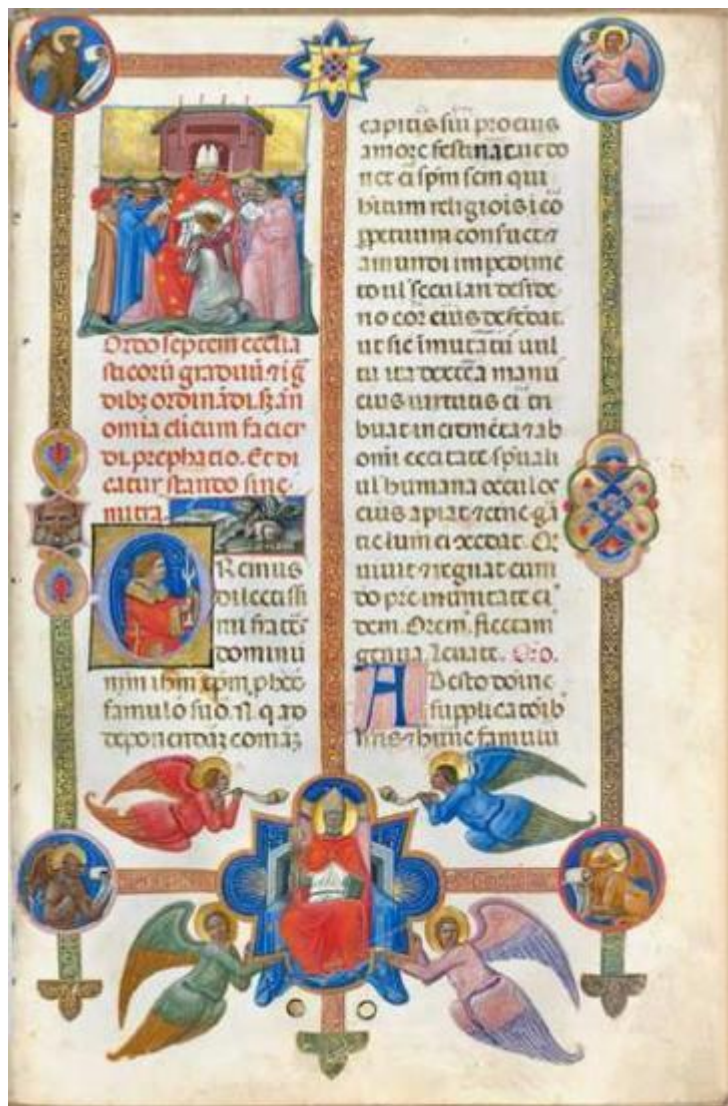 Ordo septem ecclia
sticorū graduū ⁊ ī
dibꝫ ordinādi
omia clicum facien
di prephatio. Et di
catur stando sine
mitra.
Oremus
dilectissi
mi fratēs
dominū
nr̄m ihm xp̄m
famulo suo .N. q ad
deponendaꝫ comaꝫ
capitis sui pro eius
amore festinat ut do
net ei spm̄ scm̄ qui
bitum religiois ī eo
ppetuum conseruet ⁊
a mundi impedimē
to ul seculari deside
rio cor eius defēdat.
ut sic īmutatur ī uul
tu ita dextera manū
eius uirtutis ei tri
buat incremēta ⁊ ab
omī cecitate spūali
ul humana occulos
eius apiat ⁊ eterne gr̄a
tie lumē cōcedat. Q
uiuit ⁊ regnat cum
deo pre in unitate ei
dem. Orem̄. flectam
genua. leuate. Oro.
Adesto domine
supplicatōib
nris ⁊ hunc famulū